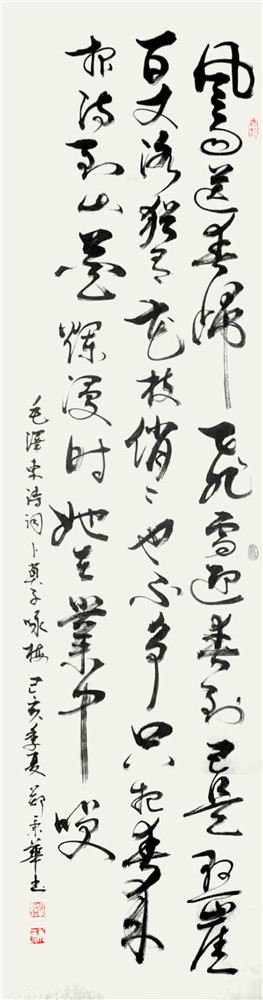 風雨送春歸飛雪迎春到已是懸崖
百丈冰猶有花枝俏〻也不争只把春来
报待到山花爛漫時她在叢中笑
毛澤東詩詞卜算子咏梅己亥季夏鄭京華书